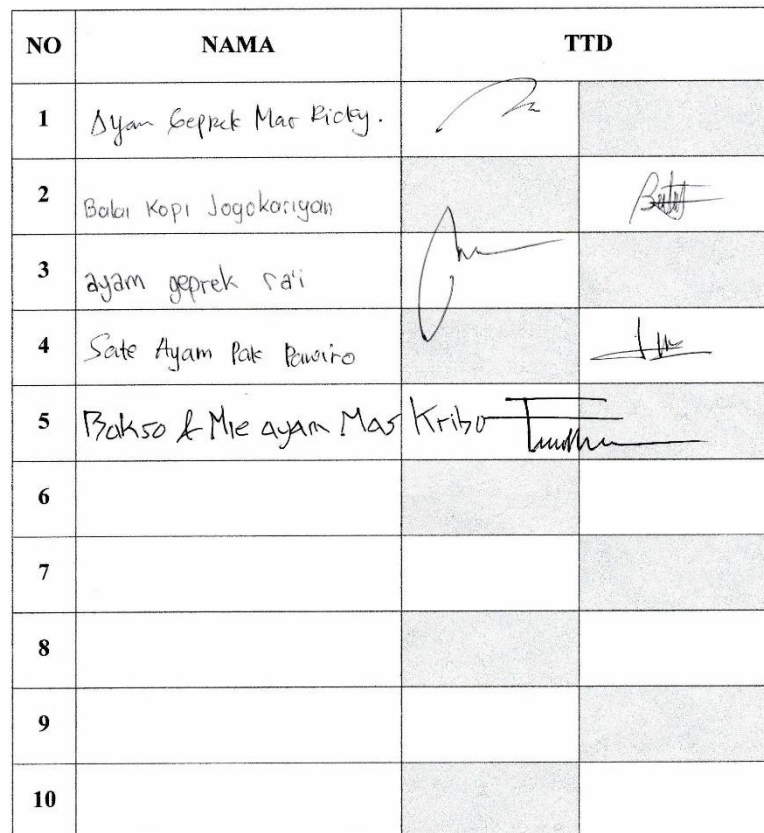 NO NAMA TTD
1 Ayam Geprek Mas Ricky.
2 Balai Kopi Jogokariyan
3 ayam geprek sa'i
4 Sate Ayam Pak Pawiro
5 Bakso & Mie ayam Mas Kribo
6
7
8
9
10